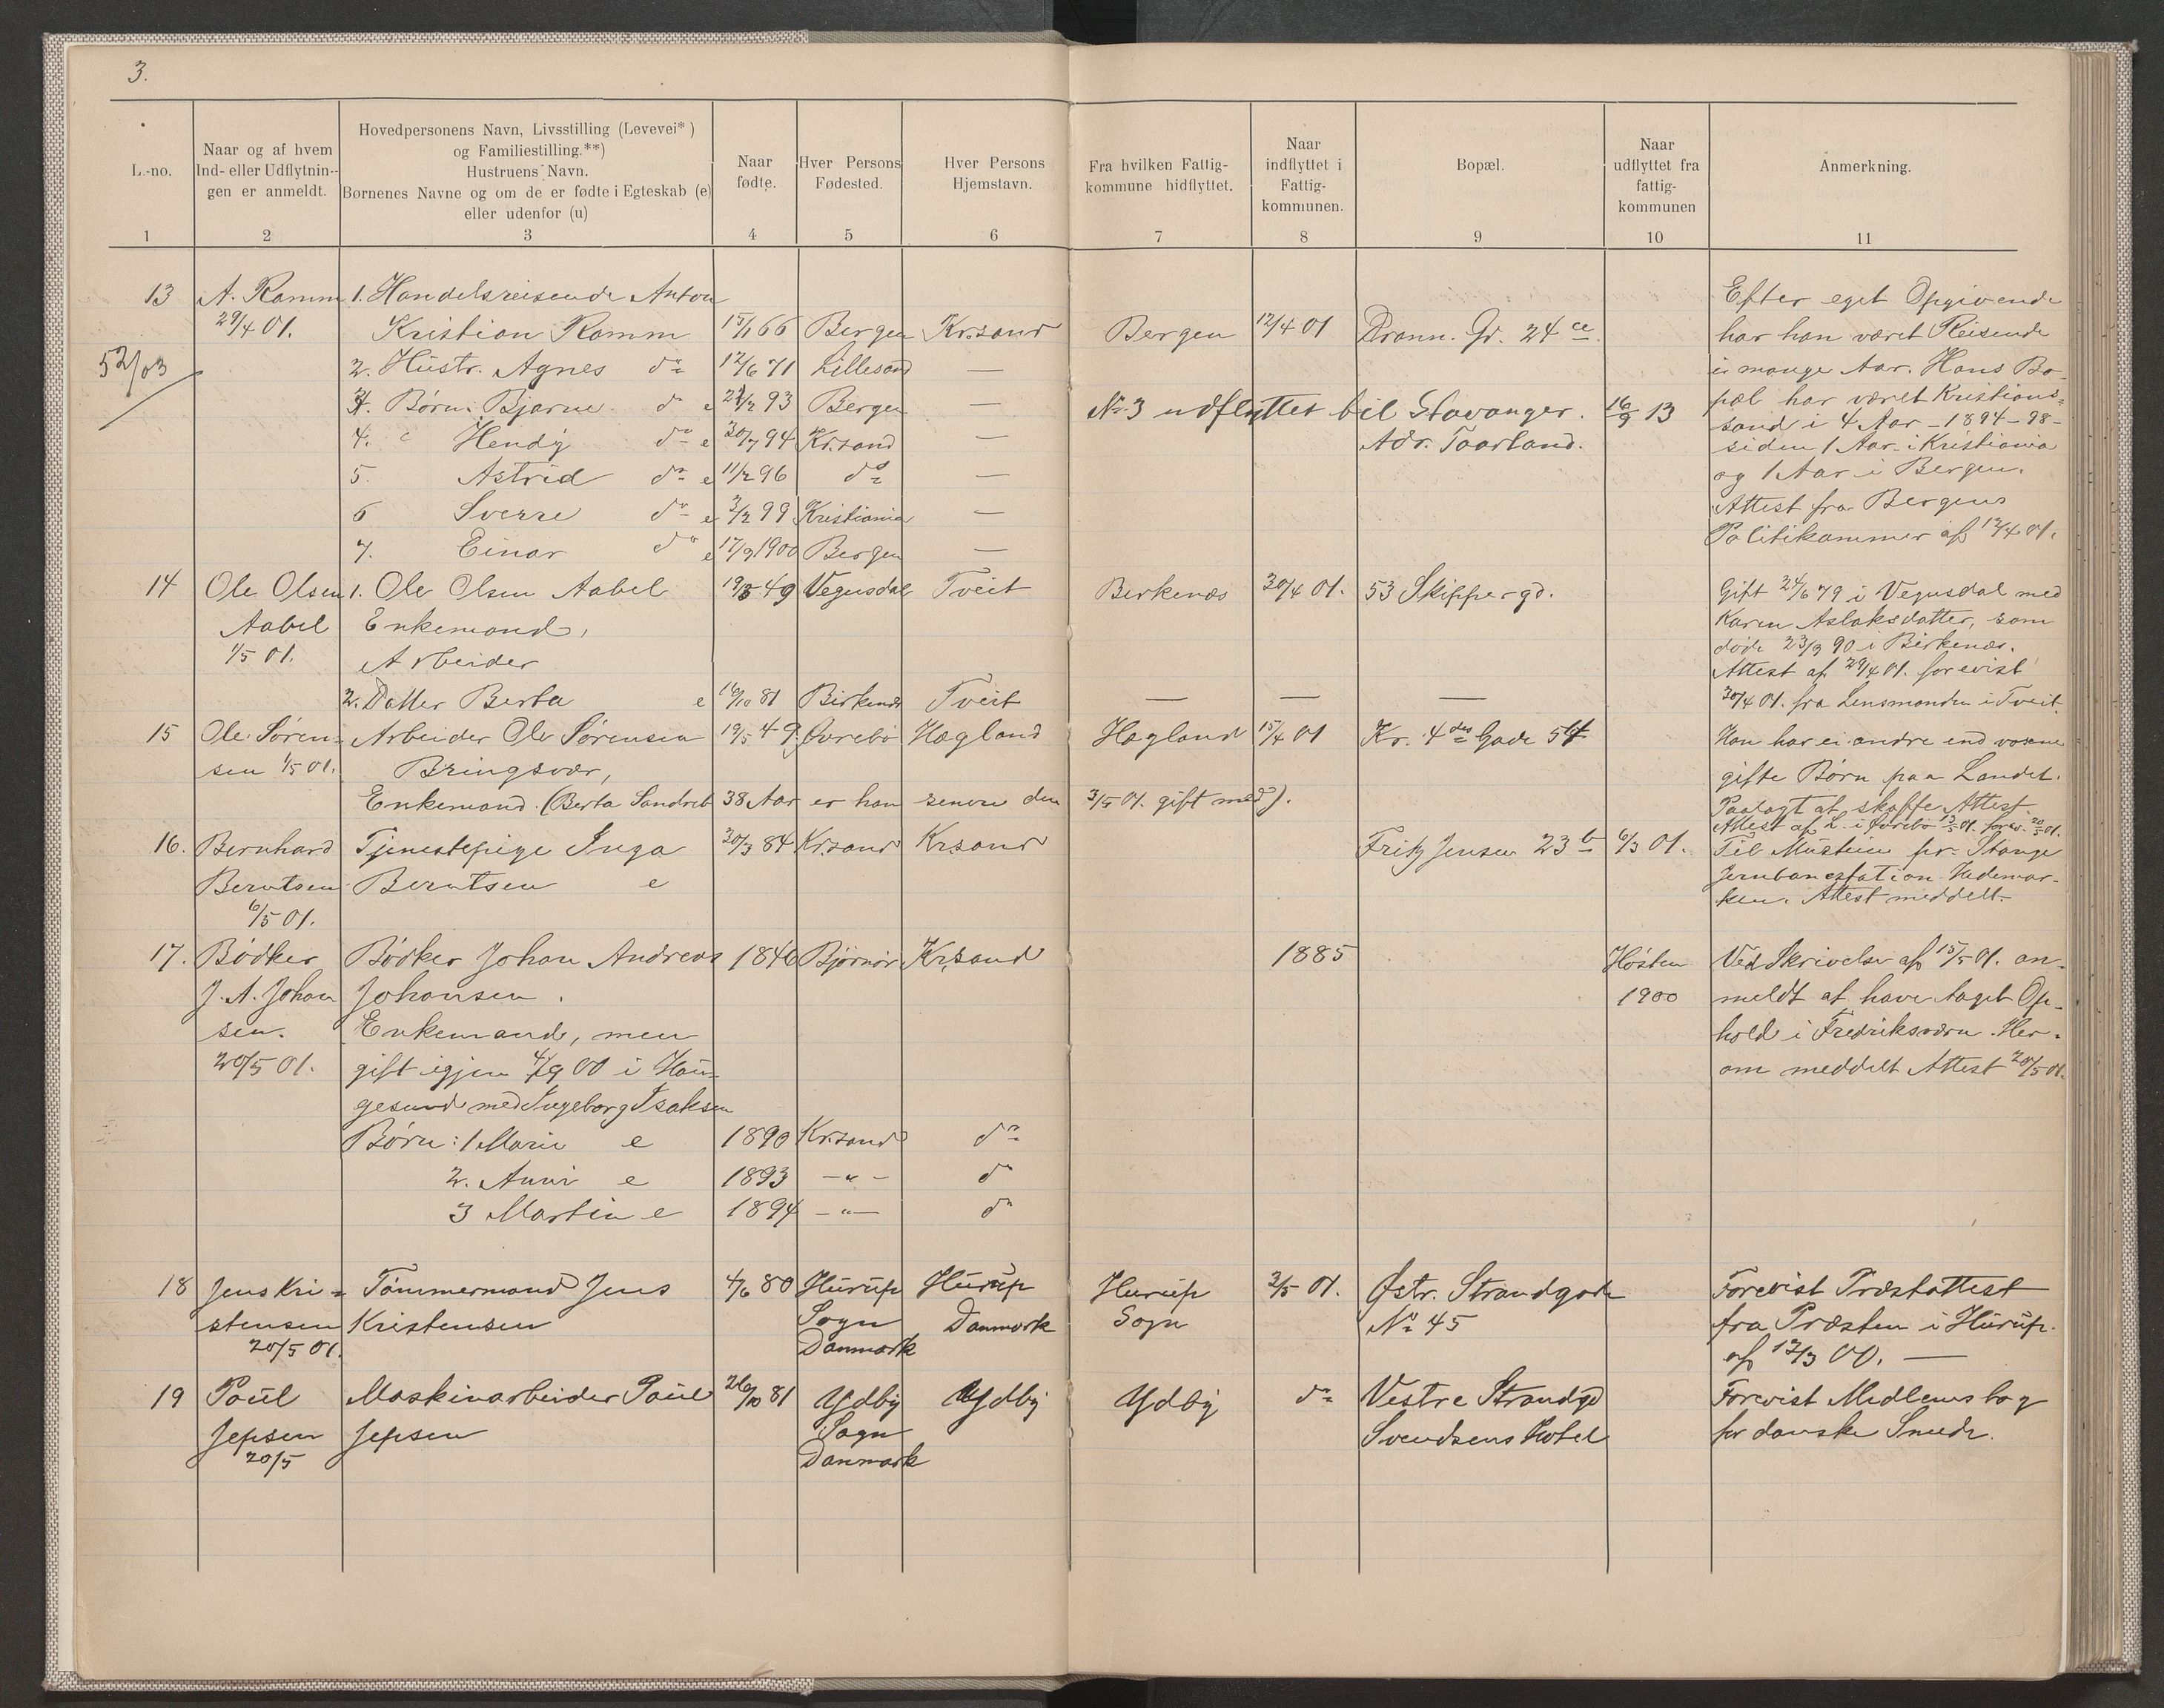 3.
L.-no.
Naar og af hvem
Ind- eller Udflytnin-
gen er anmeldt.
Hovedpersonens Navn, Livsstilling (Levevei*)
og Familiestilling.**)
Hustruens Navn.
Børnenes Navne og om de er fødte i Egteskab (e)
eller udenfor (u)
Naar
fødte.
Hver Persons
Fødested.
Hver Persons
Hjemstavn.
Fra hvilken Fattig-
kommune hidflyttet.
Naar
indflyttet i
Fattig-
kommunen.
Bopæl.
Naar
udflyttet fra
fattig-
kommunen
Anmerkning.
1 2 3 4 5 6 7 8 9 10 11
13 A. Ramm 1. Handelsreisende Anton
29/4 01. Kristian Ramm 15/1 66 Bergen Kr.sand Bergen 12/4 01 Dronn. Gd. 24 ce
52/03
2. Hustr. Agnes do 12/6 71 Lillesand —
3. Børn: Bjarne do e 21/2 93 Bergen — No 3 udflyttet til Stavanger. 16/9 13
4. " Hendy do e 30/7 94 Kr.sand — Adr. Taarland.
5. Astrid do e 11/2 96 do —
6 Sverre do e 3/2 99 Kristiania —
7. Einar do e 17/9 1900 Bergen —
Efter eget Opgivende
har han været Reisende
i mange Aar. Hans Bo-
pæl har været Kristians-
sand i 4 Aar - 1894-98 -
siden 1 Aar i Kristiania
og 1 Aar i Bergen.
Attest fra Bergens
Politikammer af 12/4 01.
14 Ole Olsen 1. Ole Olsen Aabel 19/3 49 Vegusdal Tveit Birkenes 30/4 01. 53 Skippergd.
Aabel Enkemand,
1/5 01. Arbeider
2. Datter Berta e 16/10 81 Birkenes Tveit — — —
Gift 24/6 79 i Vegusdal med
Karen Aslaksdatter, som
døde 23/9 90 i Birkenes.
Attest af 29/4 01. forevist
30/4 01. fra Lensmanden i Tveit.
15 Ole Søren- Arbeider Ole Sørensen 19/5 49. Øvrebø Hægland Hægland 15/4 01 Kr. 4des Gade 54
sen 1/5 01. Bringsvær,
Enkemand. (Berta Sandreb 38 Aar er han senere den 3/5 01. gift med).
Han har ei andre end voxne
gifte Børn paa Landet.
Paalagt at skaffe Attest
Attest af L. i Øvrebø 13/5 01. forev. 20/5 01.
16. Bernhard Tjenestepige Inga 30/3 84 Kr.sand Kr.sand Fritz Jensen 23 b 6/3 01.
Berntsen Berntsen e
6/5 01.
Til Musteien pr. Stange
Jernbanestation Hedemar-
ken. Attest meddelt.
17. Bødker Bødker Johan Andreas 1846 Bjørnør Kr.sand 1885 Høsten
J. A. Johan Johansen. 1900
sen. Enkemand, men
20/5 01. gift igjen 4/9 00 i Hau-
gesund med Ingeborg Isaksen
Børn: 1 Marie e 1890 Kr.sand do
2. Anni e 1893 - " - do
3 Martin e 1894 - " - do
Ved Skrivelse af 15/5 01. an-
meldt at have taget Op-
hold i Fredriksværn. Her-
om meddelt Attest 20/5 01.
18 Jens Kri- Tømmermand Jens 4/6 80 Hurup Hurup Hurup 2/5 01. Østr. Strandgade
stensen Kristensen Sogn Danmark Sogn No 45
20/5 01. Danmark
Forevist Præsteattest
fra Præsten i Hurup
af 12/3 00. —
19 Poul Maskinarbeider Poul 26/10 81 Ydby Ydby Ydby do Vestre Strandgd
Jepsen Jepsen Sogn Svendsens Hotel
20/5 Danmark
Forevist Medlemsbog
for danske Smede.